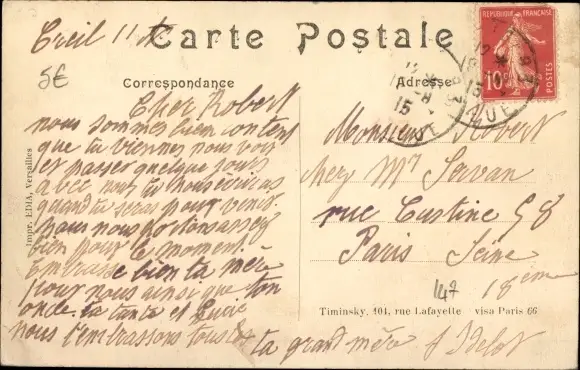 Creil 11
Carte Postale
5€
Correspondance
Adresse
REPUBLIQUE FRANÇAISE
10c
POSTES
15
Cher Robert
nous sommes bien content
que tu viennes nous voir
et passer quelque jours
avec nous tu nous écriras
quand tu seras pour venir
nous nous portons assez
bien pour le moment
Embrasse bien ta mère
pour nous ainsi que ton
oncle ta tante et
nous t'embrassons tous
ta grand mère
Monsieur Robert
chez Mr Servan
rue Custine 58
Paris Seine
18eme
147
Impr. EDIA, Versailles
Timinsky, 101, rue Lafayette visa Paris 66